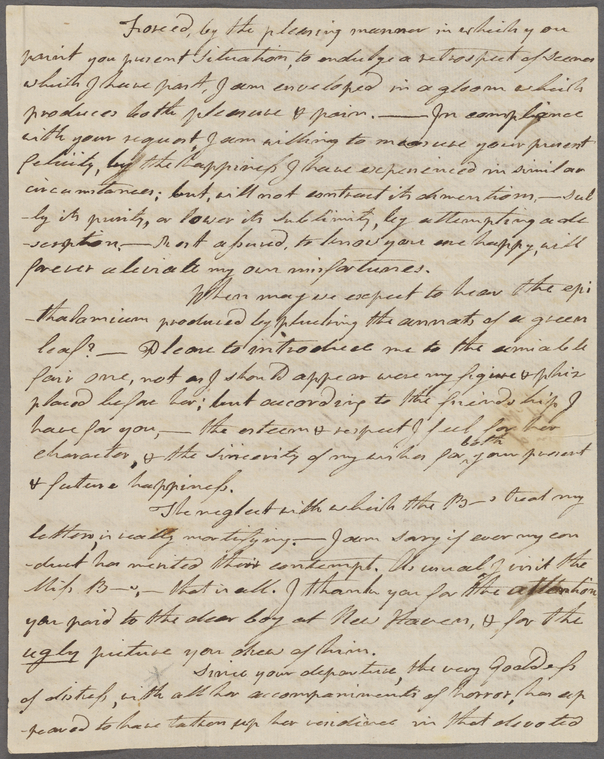 Forced, by the pleasing manner in which you
paint you present situation, to endulge a retrospect of scenes
which I have past, I am enveloped in a gloom which
produces both pleasure & pain. — In compliance
with your request, I am willing to measure your present
felicity, by the happiness I have experienced in similar
circumstances; but, will not contract its dimentions, — sul-
-ly its purity, or lower its sublimity, by attempting a de-
-scription. — Rest assured, to know you are happy, will
forever aleviate my own misfortunes.
When may we expect to hear the epi
-thalamium produced by plucking the annals of a green
leaf? — Please to introduce me to the amiable
fair one, not as I should appear were my figure & phiz
placed before her; but according to the friendship I
have for you, — the esteem & respect I feel for her
character, & the sincerity of my wishes for both your present
& future happiness.
The neglect with which the B—s treat my
letters, is really mortifying. — I am sory if ever my con
-duct has merited their contempt. As usual I visit the
Miss B—s, — that is all. I thank you for the attention
you paid to the dear boy at New Haven, & for the
ugly picture you drew of him.
Since your departure, the very Goddess
of distress, with all her accompaniments of horror, has ap
-peared to have taken up her residence in that devoted